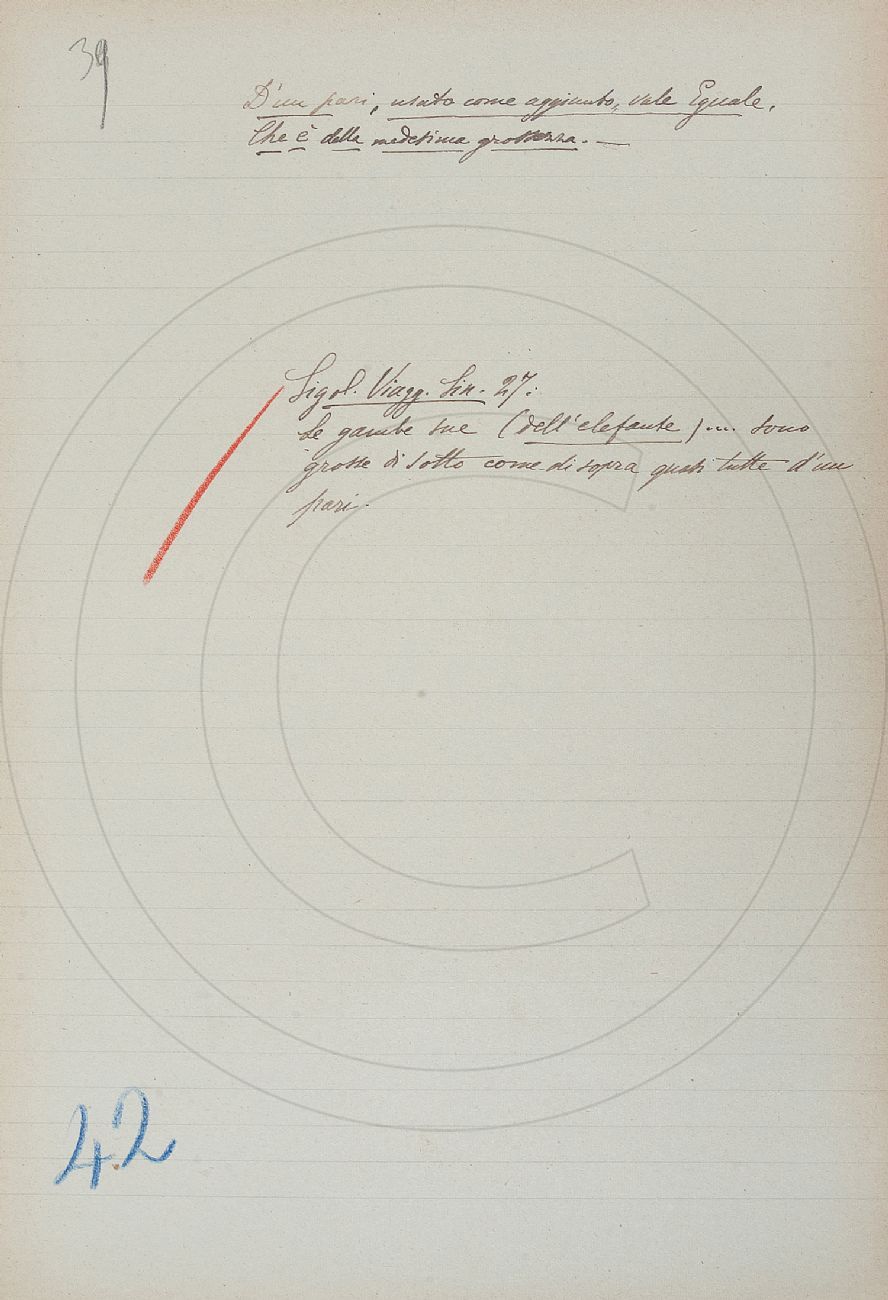 39
D'un pari, usato come aggiunto, vale Eguale,
Che è della medesima grossezza. —
Sigol. Viagg. Sin. 27:
Le gambe sue (dell'elefante) .... sono
grosse di sotto come di sopra quasi tutte d'un
pari.
42